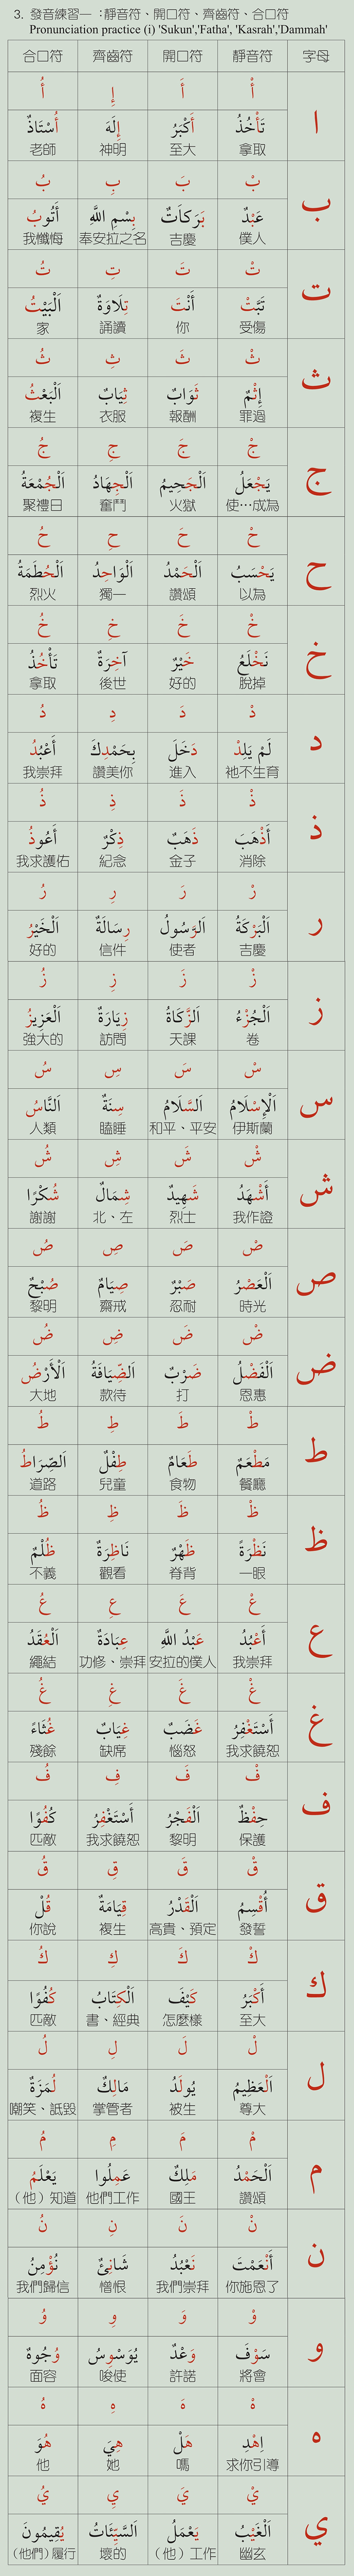 3. 發音練習一：靜音符、開口符、齊齒符、合口符
Pronunciation practice (i) 'Sukun','Fatha', 'Kasrah','Dammah'
合口符 齊齒符 開口符 靜音符 字母
أْ أَ إِ أُ
ا
تَأْخُذُ أَكْبَرُ إِلَهَ أُسْتَاذٌ
老師 神明 至大 拿取
بْ بَ بِ بُ
ب
عَبْدٌ بَرَكَاتٌ بِسْمِ اللَّهِ أَتُوبُ
我懺悔 奉安拉之名 吉慶 僕人
تْ تَ تِ تُ
ت
تَبَّتْ أَنْتَ تِلَاوَةٌ اَلْبَيْتُ
家 誦讀 你 受傷
ثْ ثَ ثِ ثُ
ث
إِثْمٌ ثَوَابٌ ثِيَابٌ اَلْبَعْثُ
複生 衣服 報酬 罪過
جْ جَ جِ جُ
ج
يَجْعَلُ اَلْجَحِيمُ اَلْجِهَادُ اَلْجُمْعَةُ
聚禮日 奮鬥 火獄 使…成為
حْ حَ حِ حُ
ح
يَحْسَبُ اَلْحَمْدُ اَلْوَاحِدُ اَلْحُطَمَةُ
烈火 獨一 讚頌 以為
خْ خَ خِ خُ
خ
نَخْلَعُ خَيْرٌ آخِرَةٌ تَأْخُذُ
拿取 後世 好的 脫掉
دْ دَ دِ دُ
د
لَمْ يَلِدْ دَخَلَ بِحَمْدِكَ أَعْبُدُ
我崇拜 讚美你 進入 祂不生育
ذْ ذَ ذِ ذُ
ذ
أَذْهَبَ ذَهَبٌ ذِكْرٌ أَعُوذُ
我求護佑 紀念 金子 消除
رْ رَ رِ رُ
ر
اَلْبَرْكَةُ اَلرَّسُولُ رِسَالَةٌ اَلْخَيْرُ
好的 信件 使者 吉慶
زْ زَ زِ زُ
ز
اَلْجُزْءُ اَلزَّكَاةُ زِيَارَةٌ اَلْعَزِيزُ
強大的 訪問 天課 卷
سْ سَ سِ سُ
س
اَلْإِسْلَامُ اَلسَّلَامُ سِنَةٌ اَلنَّاسُ
人類 瞌睡 和平、平安 伊斯蘭
شْ شَ شِ شُ
ش
أَشْهَدُ شَهِيدٌ شِمَالٌ شُكْرًا
謝謝 北、左 烈士 我作證
صْ صَ صِ صُ
ص
اَلْعَصْرُ صَبْرٌ صِيَامٌ صُبْحٌ
黎明 齋戒 忍耐 時光
ضْ ضَ ضِ ضُ
ض
اَلْفَضْلُ ضَرْبٌ اَلضِّيَافَةُ اَلْأَرْضُ
大地 款待 打 恩惠
طْ طَ طِ طُ
ط
مَطْعَمٌ طَعَامٌ طِفْلٌ اَلصِّرَاطُ
道路 兒童 食物 餐廳
ظْ ظَ ظِ ظُ
ظ
نَظْرَةً ظَهْرٌ نَاظِرَةٌ ظُلْمٌ
不義 觀看 脊背 一眼
عْ عَ عِ عُ
ع
أَعْبُدُ عَبْدُ اللَّهِ عِبَادَةٌ اَلْعُقَدُ
繩結 功修、崇拜 安拉的僕人 我崇拜
غْ غَ غِ غُ
غ
أَسْتَغْفِرُ غَضَبٌ غِيَابٌ غُثَاءً
殘餘 缺席 惱怒 我求饒恕
فْ فَ فِ فُ
ف
حِفْظٌ اَلْفَجْرُ أَسْتَغْفِرُ كُفُوًا
匹敵 我求饒恕 黎明 保護
قْ قَ قِ قُ
ق
أُقْسِمُ اَلْقَدْرُ قِيَامَةٌ قُلْ
你說 複生 高貴、預定 發誓
كْ كَ كِ كُ
ك
أَكْبَرُ كَيْفَ اَلْكِتَابُ كُفُوًا
匹敵 書、經典 怎麼樣 至大
لْ لَ لِ لُ
ل
اَلْعَظِيمُ يُولَدُ مَالِكٌ لُمَزَةٌ
嘲笑、詆毀 掌管者 被生 尊大
مْ مَ مِ مُ
م
اَلْحَمْدُ مَلِكٌ عَمِلُوا يَعْلَمُ
（他）知道 他們工作 國王 讚頌
نْ نَ نِ نُ
ن
أَنْعَمْتَ نَعْبُدُ شَانِئٌ نُؤْمِنُ
我們歸信 憎恨 我們崇拜 你施恩了
وْ وَ وِ وُ
و
سَوْفَ وَعْدٌ يُوَسْوِسُ وُجُوهٌ
面容 唆使 許諾 將會
هْ هَ هِ هُ
ه
اِهْدِ هَلْ هِيَ هُوَ
他 她 嗎 求你引導
يْ يَ يِ يُ
ي
اَلْغَيْبُ يَعْمَلُ اَلسَّيِّئَاتُ يُقِيمُونَ
（他們）履行 壞的 （他）工作 幽玄